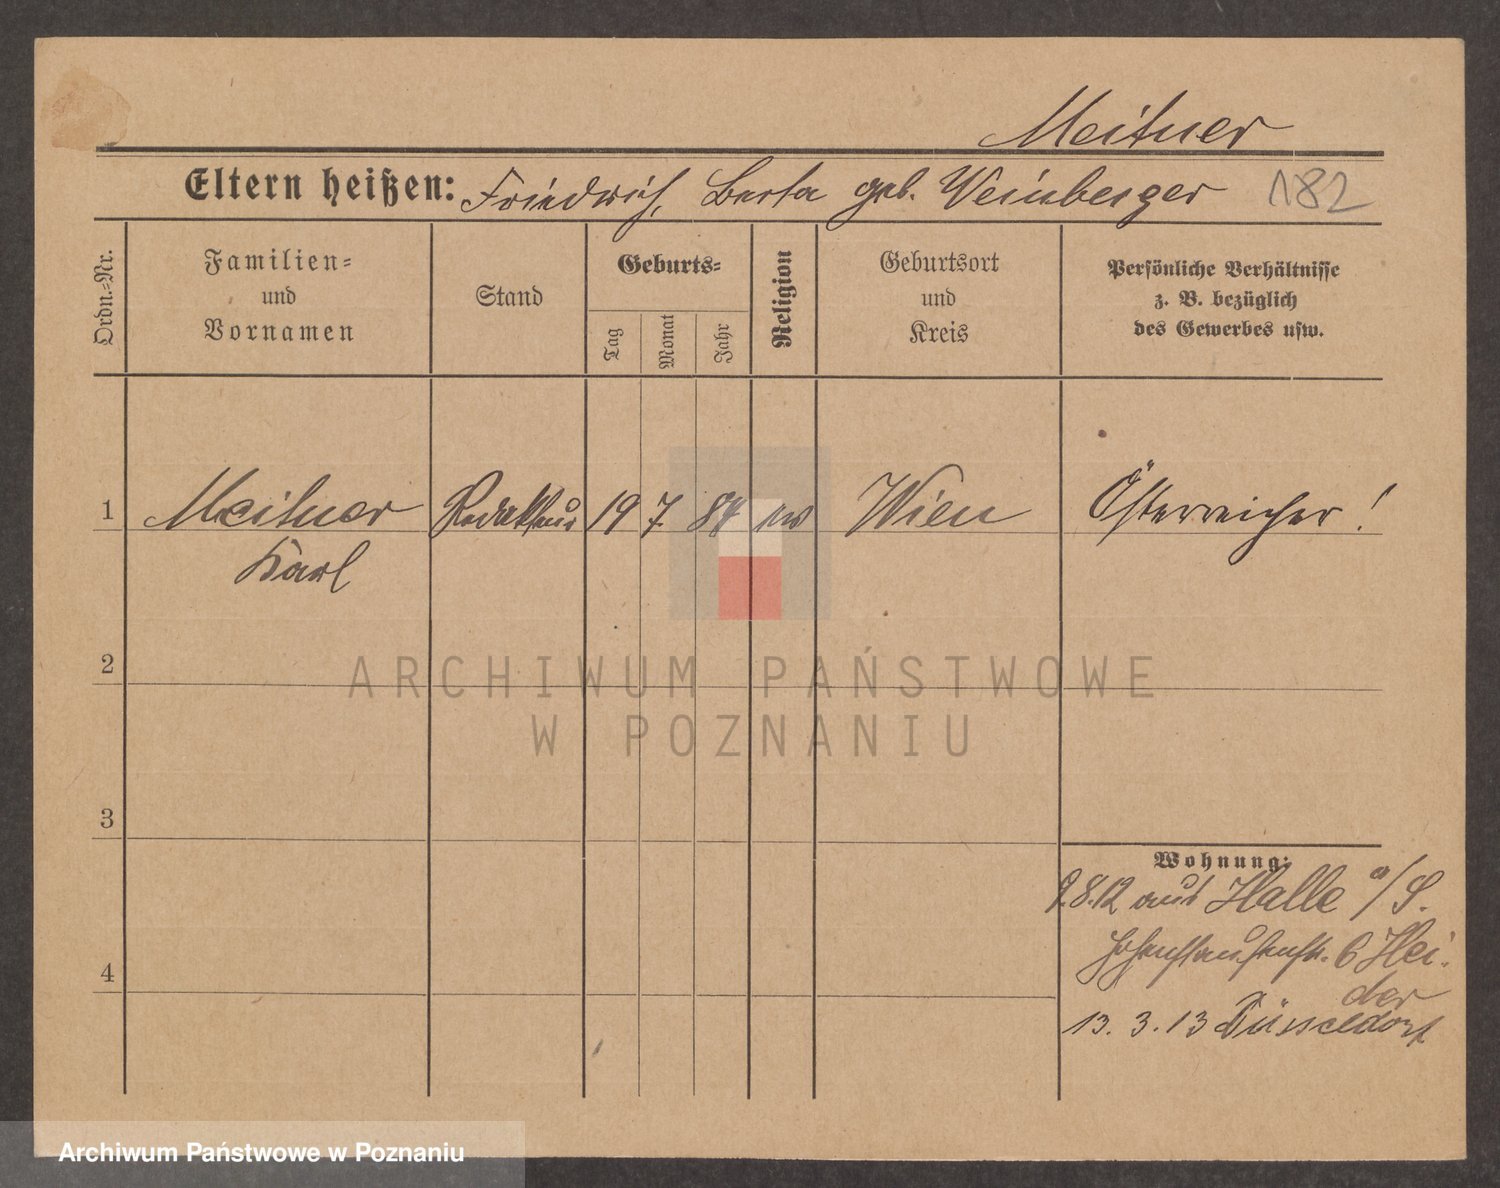 Meitner
Eltern heißen: Friedrich, Berta geb. Weinberger 182
Ordn.-Nr.
Familien-
und
Vornamen
Stand
Geburts-
Tag
Monat
Jahr
Religion
Geburtsort
und
Kreis
Persönliche Verhältnisse
z. B. bezüglich
des Gewerbes usw.
1 Meitner Redakteur 19 7. 84 Wien Österreicher!
Karl
2
3
4
Wohnung:
9.8.12 aus Halle a/S.
Hohenstaufenstr. 6 Hei-
der
13. 3. 13 Düsseldorf
ARCHIWUM PAŃSTWOWE
W POZNANIU
Archiwum Państwowe w Poznaniu